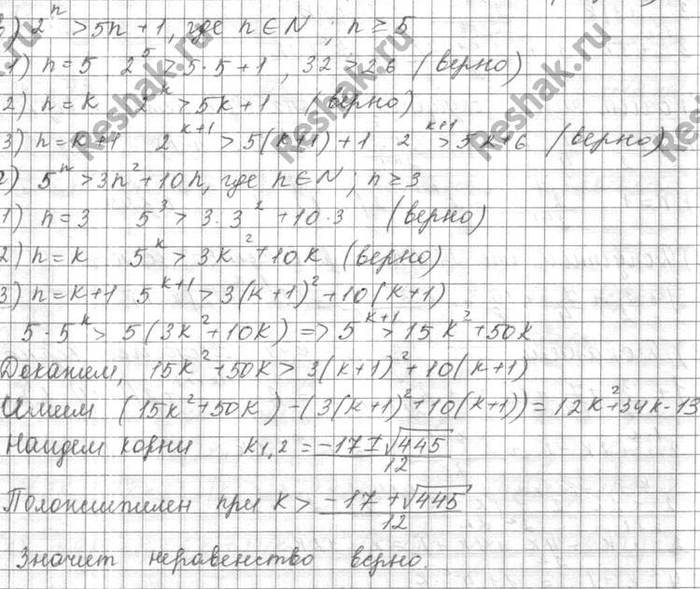 ) 2ⁿ > 5n + 1, где n ∈ N ; n ≥ 5
1) n = 5 2⁵ > 5·5+1 , 32 > 26 (верно)
2) n = k 2ᵏ > 5k+1 (верно)
3) n = k+1 2ᵏ⁺¹ > 5(k+1)+1 2ᵏ⁺¹ > 5k+6 (верно)
2) 5ⁿ > 3n² + 10n, где n ∈ N ; n ≥ 3
1) n = 3 5³ > 3·3² + 10·3 (верно)
2) n = k 5ᵏ > 3k² + 10k (верно)
3) n = k+1 5ᵏ⁺¹ > 3(k+1)² + 10(k+1)
5·5ᵏ > 5(3k² + 10k) => 5ᵏ⁺¹ > 15k² + 50k
Докажем, 15k² + 50k > 3(k+1)² + 10(k+1)
Имеем (15k² + 50k) - (3(k+1)² + 10(k+1)) = 12k² + 34k - 13
Найдем корни k₁,₂ = (-17 ± √445)/12
Положителен при k > (-17 + √445)/12
Значит неравенство верно.
Reshak.ru
Reshak.ru
Reshak.ru